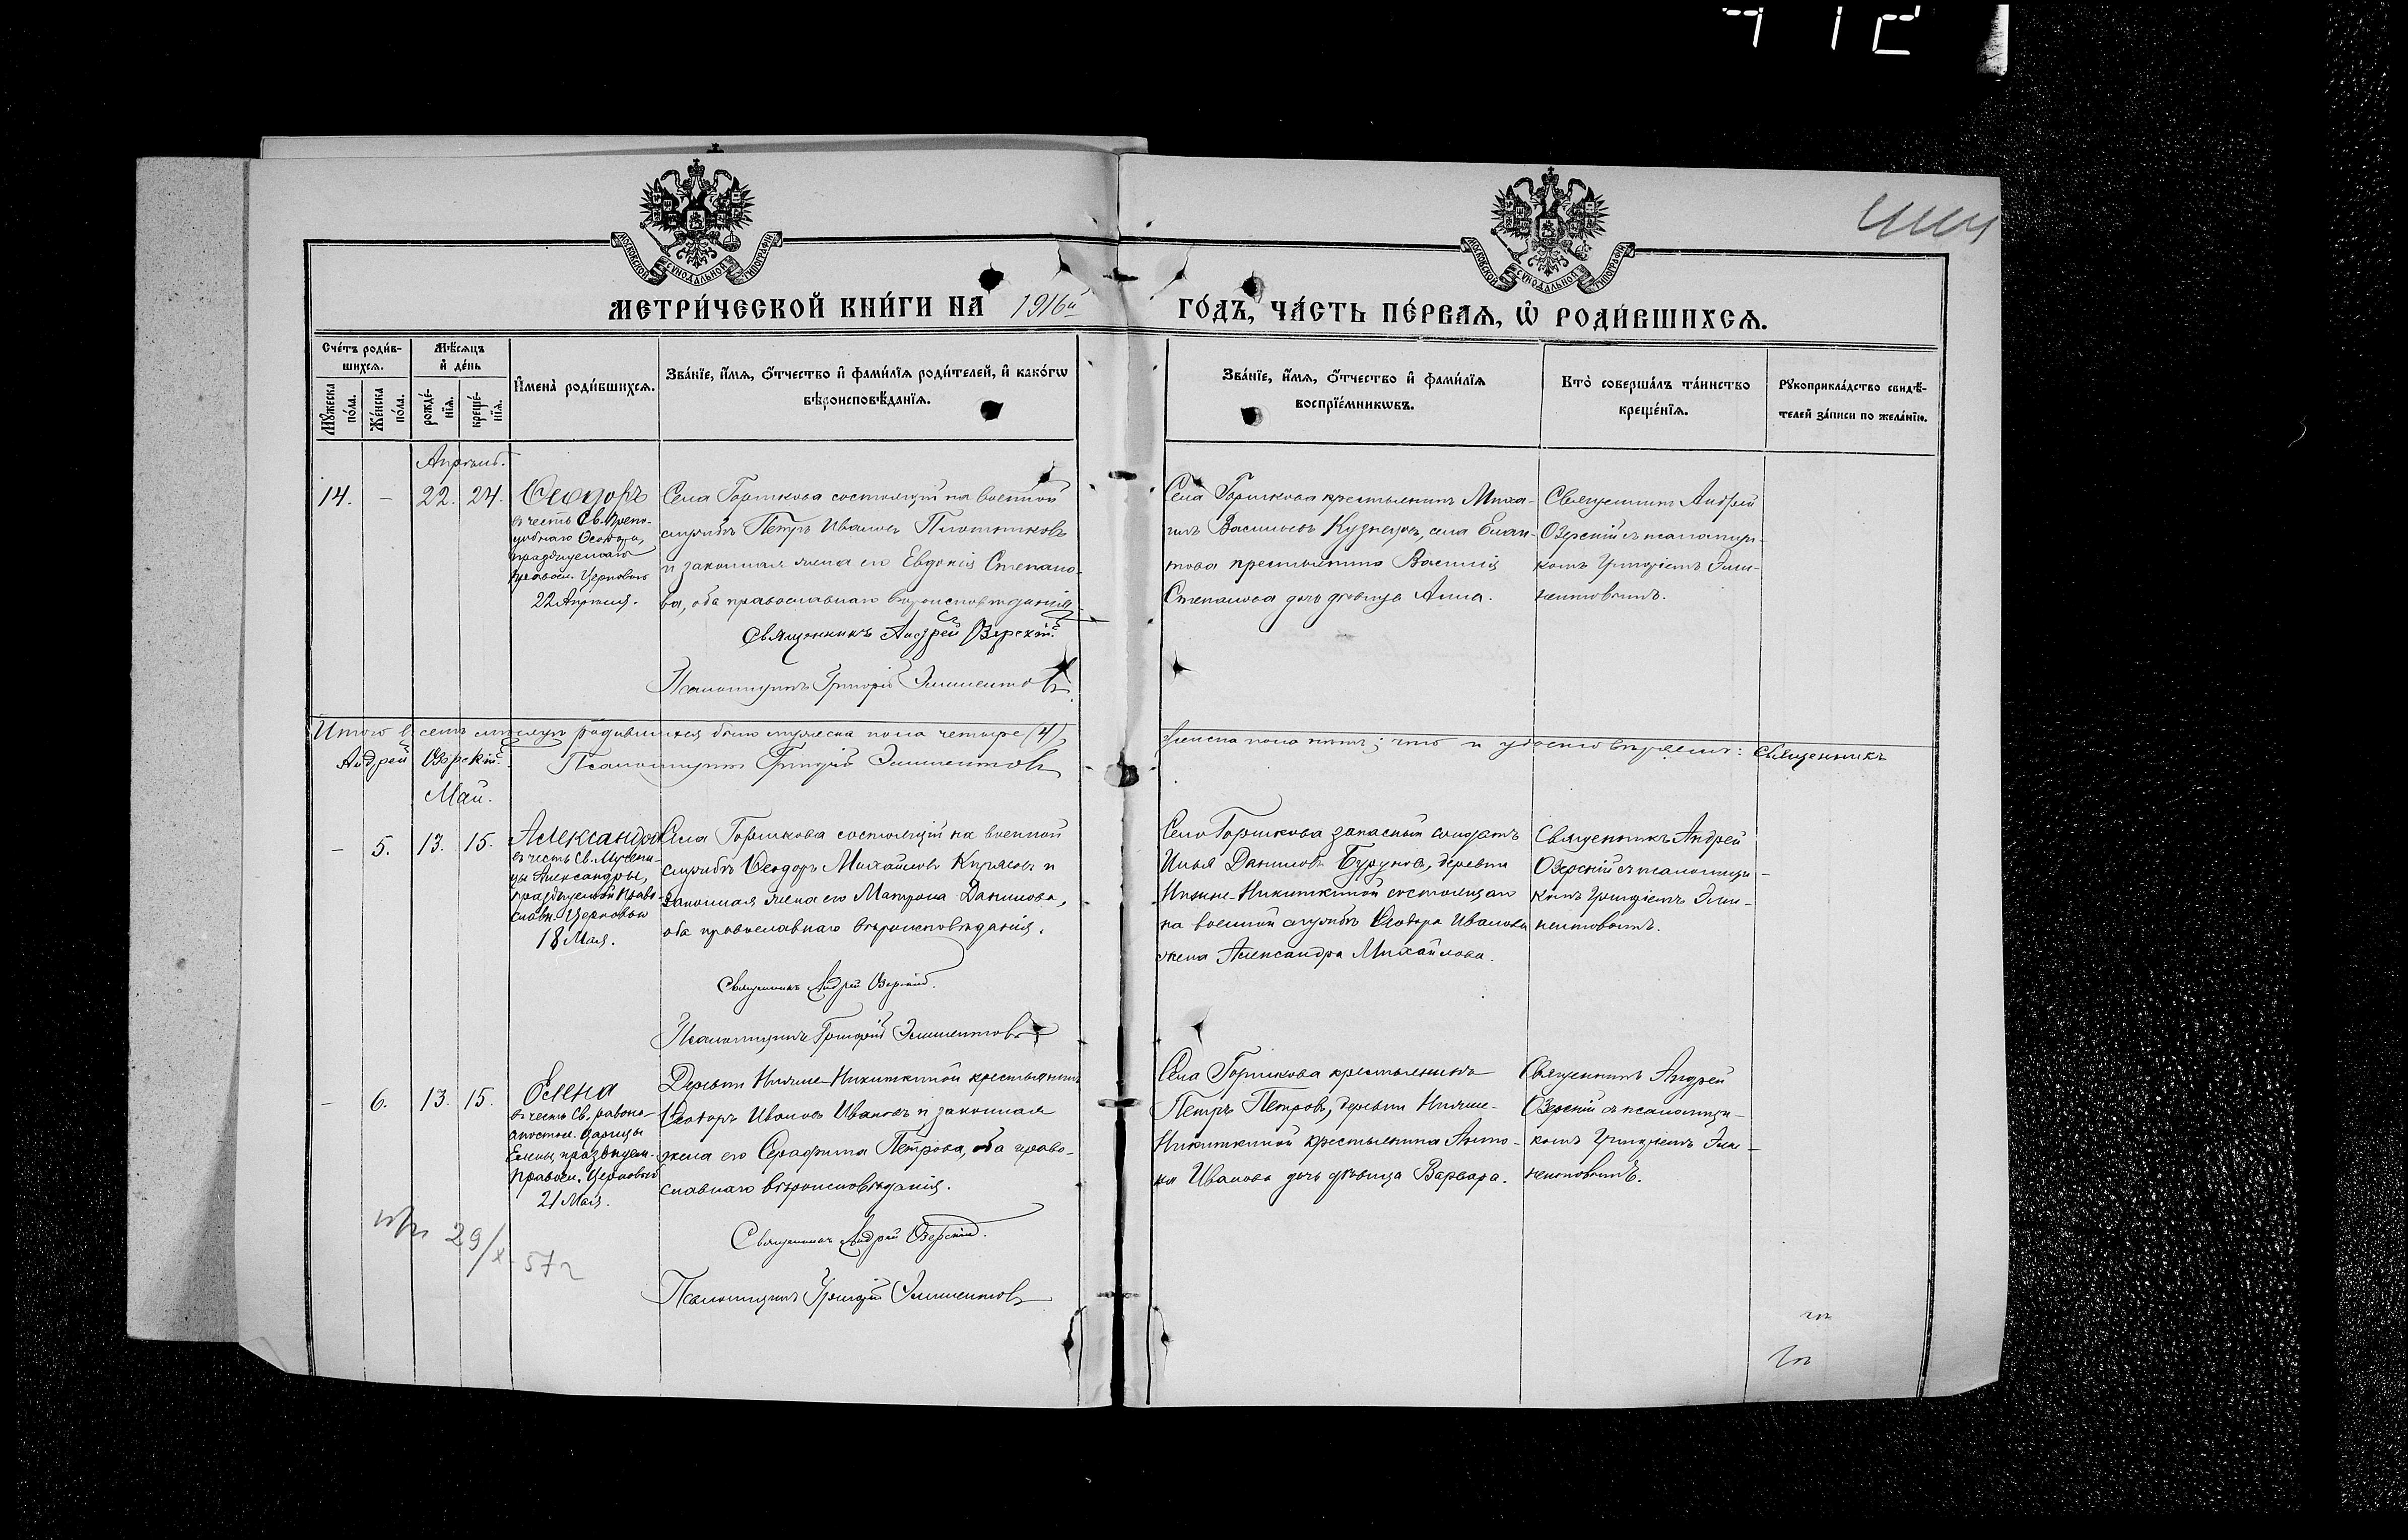 712
МОСКОВСКОЙ СѴНОДАЛЬНОЙ ТИПОГРАФІИ
МОСКОВСКОЙ СѴНОДАЛЬНОЙ ТИПОГРАФІИ
МЕТРИ́ЧЕСКОЙ КНИ́ГИ НА 1916й ГО́ДЪ, ЧА́СТЬ ПЕ́РВАЯ, Ѡ РОДИ́ВШИХСЯ.
Сче́тъ роди́в-
шихся.
Мѣ́сяцъ
и де́нь
Му́жеска
по́ла.
Же́нска
по́ла.
рожде́-
нїя.
креще́-
нїя.
Имена̀ роди́вшихся.
Зва́нїе, и́мя, о́тчество и фами́лїя роди́телей, и како́гѡ
вѣроисповѣ́данїя.
Зва́нїе, и́мя, о́тчество и фами́лїя
воспрїе́мникѡвъ.
Кто̀ соверша́лъ та́инство
креще́нїя.
Рукоприкла́дство свидѣ́-
телей за́писи по жела́нїю.
Апрѣль.
14. - 22. 24.
Ѳеодоръ
въ честь Св. Препо-
добнаго Ѳеодора,
празднуемаго
Правосл. Церковью
22 Апрѣля.
Села Горшкова состоящій на военной
службѣ Петръ Ивановъ Плотниковъ
и законная жена его Евдокія Степано-
ва, оба православнаго вѣроисповѣданія.
Священникъ Андрей Озерскій.
Псаломщикъ Григорій Элпинентовъ
Села Горшкова крестьянинъ Миха-
илъ Васильевъ Кузнецовъ, села
крестьянина Василія
Степанова дочь дѣвица Анна.
Священникъ Андрей
Озерскій съ псаломщи-
комъ Григоріемъ
Итого въ семъ мѣсяцѣ родившихся было мужеска пола четыре (4),
женска пола пять; что и удостовѣряемъ: Священникъ
Андрей Озерскій. Псаломщикъ Григорій
Май.
- 5. 13. 15.
Александра
въ честь Св. Мучени-
цы Александры,
празднуемой Право-
славн. Церковью
18 Мая.
Села Горшкова состоящій на военной
службѣ Ѳеодоръ Михайловъ и
законная жена его Матрона Данилова,
оба православнаго вѣроисповѣданія.
Священникъ Андрей Озерскій.
Псаломщикъ Григорій
Село Горшкова запасный солдатъ
Илья Даниловъ Бурунов, деревни
Нижне-Никиткиной состоящаго
на военной службѣ Ѳеодора Иванова
жена Александра Михайлова.
Священникъ Андрей
Озерскій съ псаломщи-
комъ Григоріемъ
- 6. 13. 15.
Елена
въ честь Св. равно-
апостол. Царицы
Елены, празднуем.
Правосл. Церковью
21 Мая.
Деревни Нижне-Никиткиной крестьянинъ
Ѳеодоръ Ивановъ Ивановъ и законная
жена его Серафима Петрова, оба право-
славнаго вѣроисповѣданія.
Священникъ Андрей Озерскій.
Псаломщикъ Григорій
Села Горшкова крестьянинъ
Петръ Петровъ, деревни Нижне-
Никиткиной крестьянина Анто-
на Иванова дочь дѣвица Варвара.
Священникъ Андрей
Озерскій съ псаломщи-
комъ Григоріемъ
29/X 57г